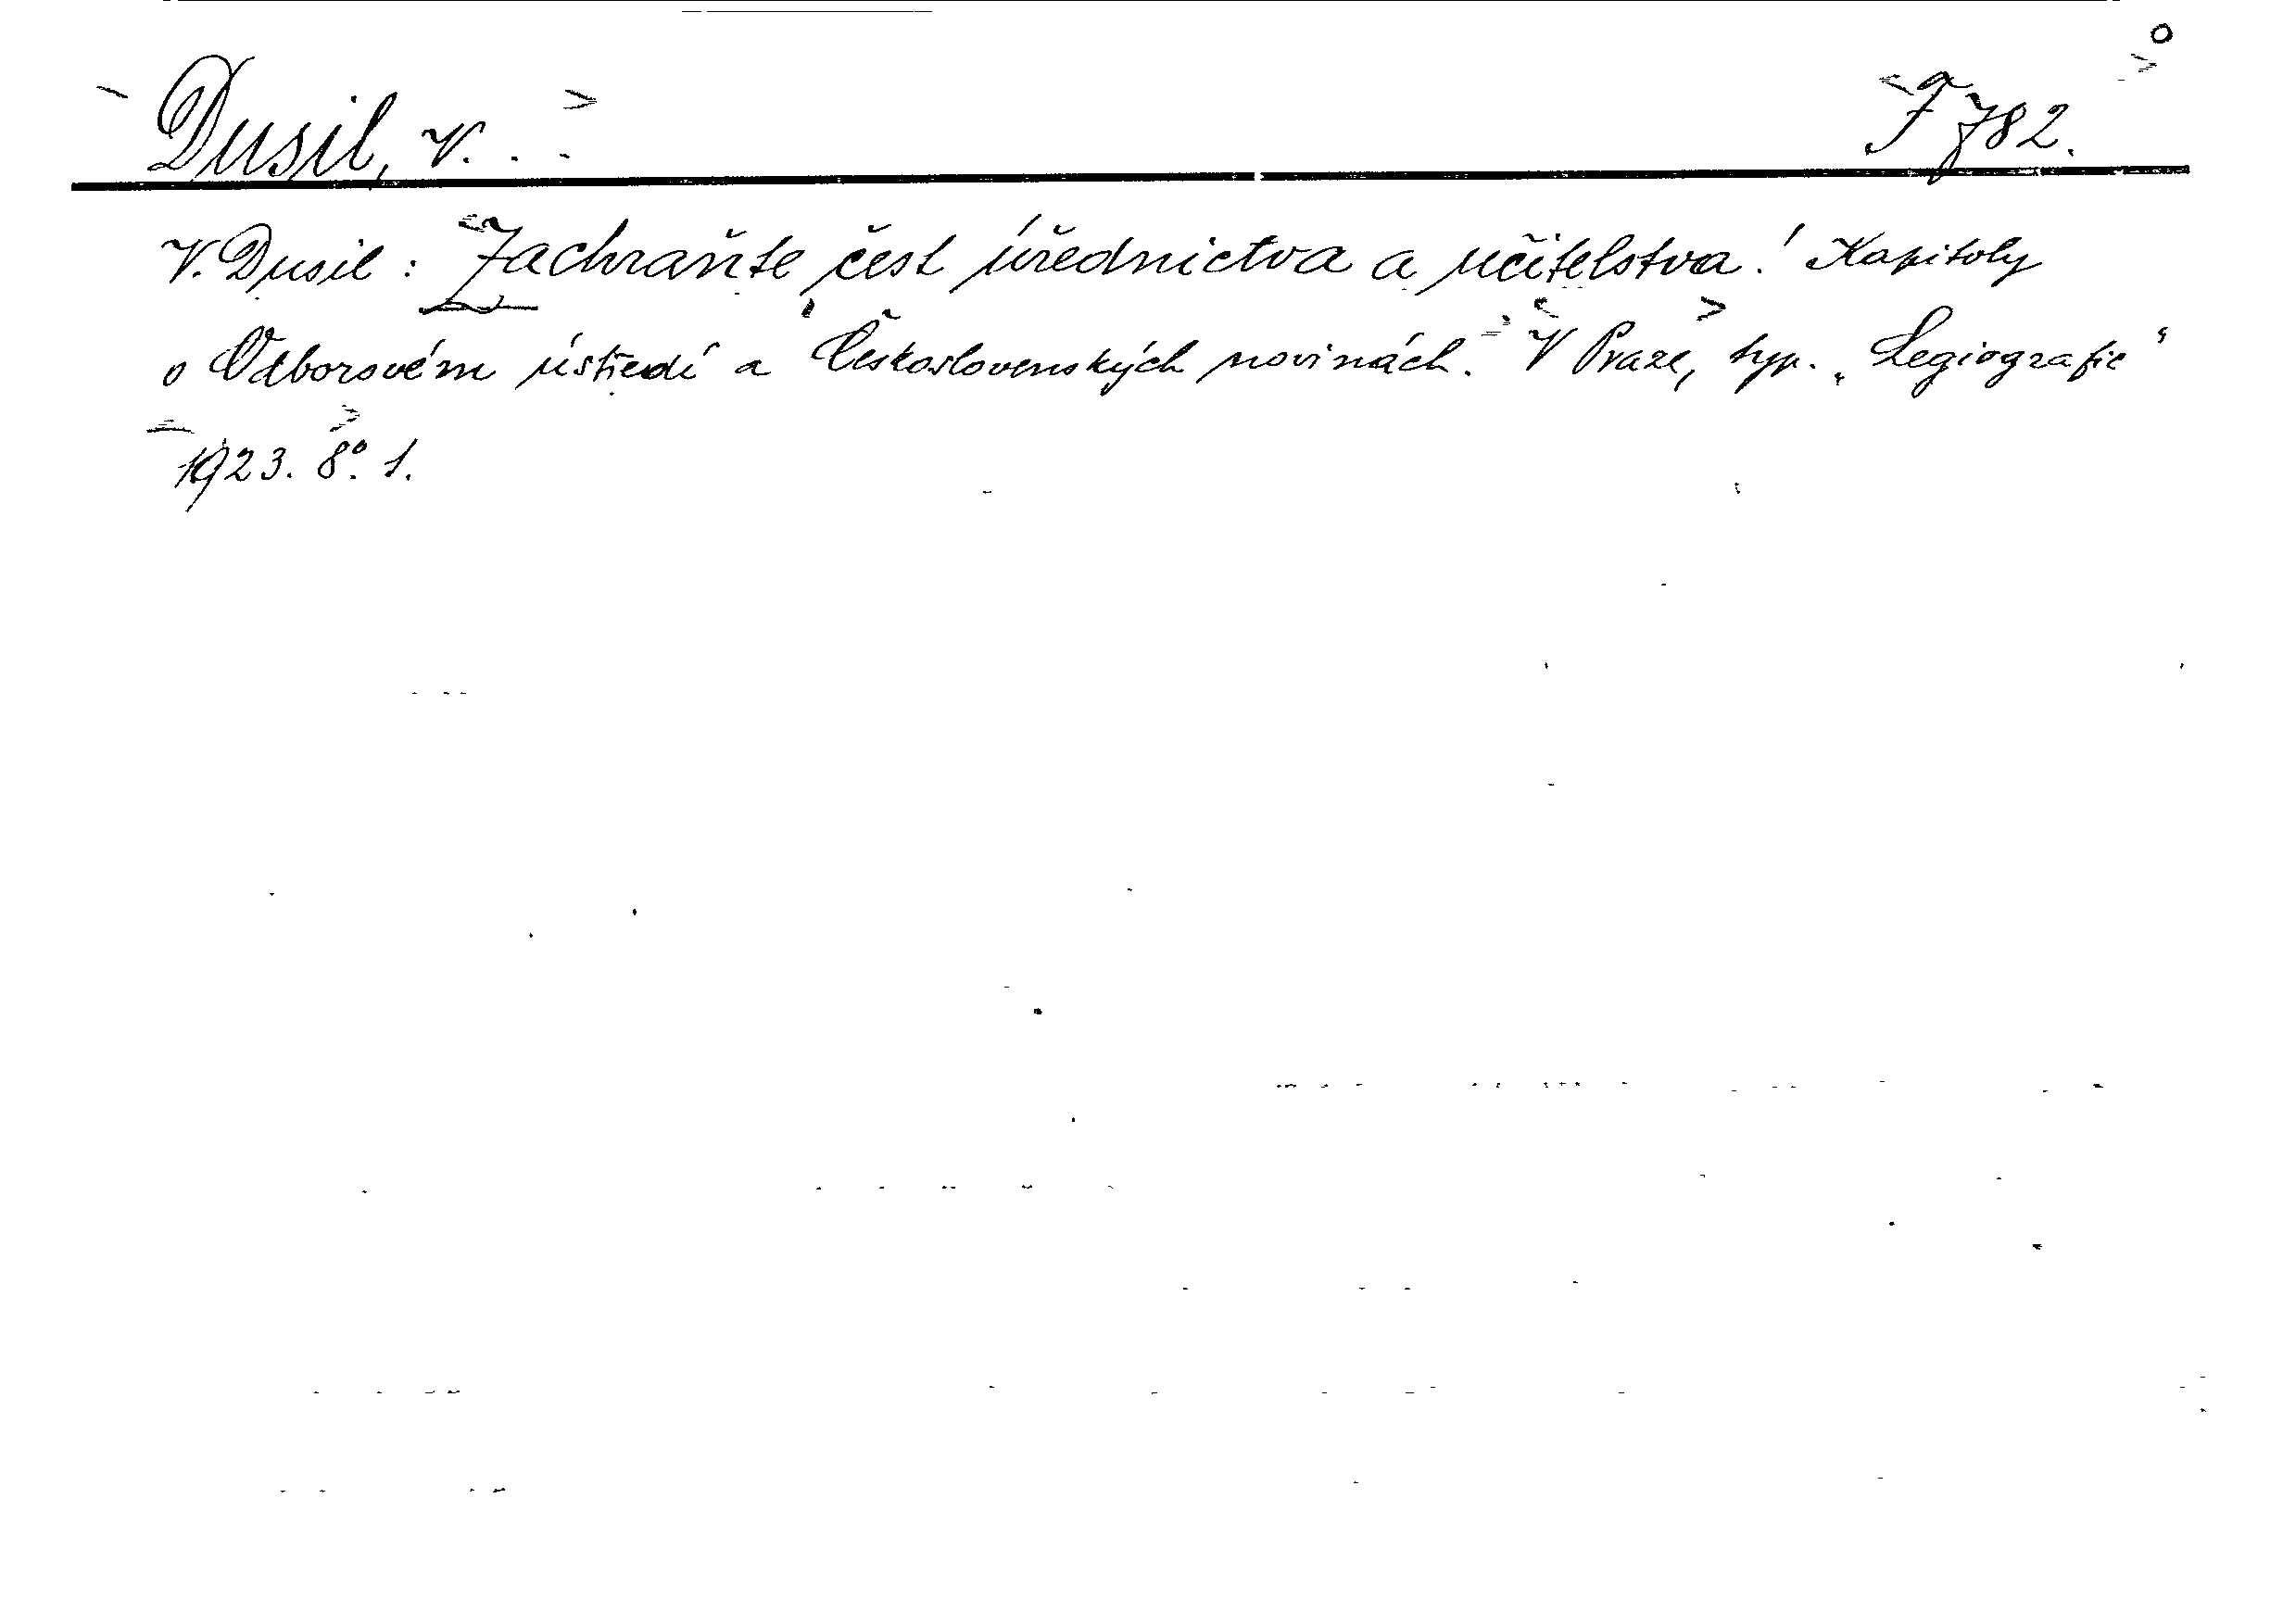 Dusil, V. . . F 782.
V. Dusil: Zachraňte čest úřednictva a učitelstva! Kapitoly
o Odborovém ústředí a Československých novinách. V Praze, typ. „Legiografie“
1923. 8° 1.